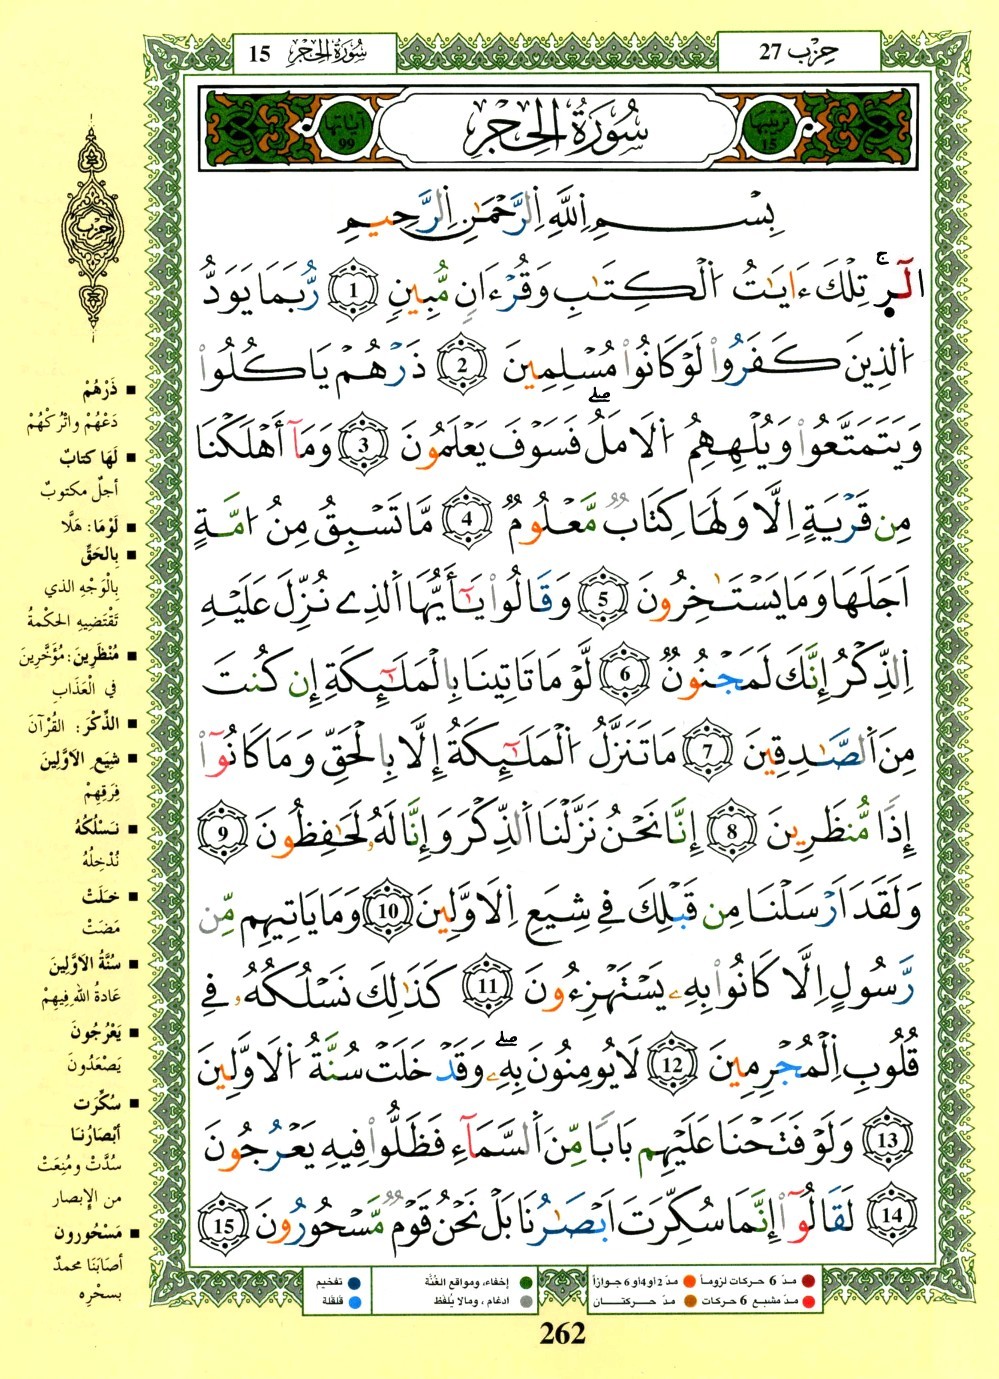 سُورَةُ الحِجْرِ 15
حِزْب 27
ترتيبها 15
سُورَةُ الحِجْرِ
آياتها 99
بِسْمِ اِ۬للَّهِ اِ۬لرَّحْمَٰنِ اِ۬لرَّحِيمِ
أَلَٓر۪ تِلْكَ ءَايَٰتُ اُ۬لْكِتَٰبِ وَقُرْءَانٖ مُّبِينٖ 1 رُّبَمَا يَوَدُّ
اُ۬لذِينَ كَفَرُواْ لَوْ كَانُواْ مُسْلِمِينَ 2 ذَرْهُمْ يَاكُلُواْ
وَيَتَمَتَّعُواْ وَيُلْهِهِمُ اُ۬لَامَلُ صلے فَسَوْفَ يَعْلَمُونَ 3 وَمَآ أَهْلَكْنَا
مِن قَرْيَةٍ اِلَّا وَلَهَا كِتَابٞ مَّعْلُومٞ 4 مَّا تَسْبِقُ مِنُ ا۟مَّةٍ
اَجَلَهَا وَمَا يَسْتَٰخِرُونَ 5 وَقَالُواْ يَٰٓأَيُّهَا اَ۬لذِے نُزِّلَ عَلَيْهِ
اِ۬لذِّكْرُ إِنَّكَ لَمَجْنُونٞ 6 لَّوْ مَا تَاتِينَا بِالْمَلَٰٓئِكَةِ إِن كُنتَ
مِنَ اَ۬لصَّٰدِقِينَ 7 مَا تَنَزَّلُ اُ۬لْمَلَٰٓئِكَةُ إِلَّا بِالْحَقِّ وَمَا كَانُوٓاْ
إِذاٗ مُّنظَرِينَ 8 إِنَّا نَحْنُ نَزَّلْنَا اَ۬لذِّكْرَ وَإِنَّا لَهُۥ لَحَٰفِظُونَ 9
وَلَقَدَ اَرْسَلْنَا مِن قَبْلِكَ فِے شِيَعِ اِ۬لَاوَّلِينَ 10 وَمَا يَاتِيهِم مِّن
رَّسُولٍ اِلَّا كَانُواْ بِهِۦ يَسْتَهْزِءُونَ 11 كَذَٰلِكَ نَسْلُكُهُۥ فِے
قُلُوبِ اِ۬لْمُجْرِمِينَ 12 لَا يُومِنُونَ بِهِۦ صلے وَقَدْ خَلَتْ سُنَّةُ اُ۬لَاوَّلِينَ
13 وَلَوْ فَتَحْنَا عَلَيْهِم بَاباٗ مِّنَ اَ۬لسَّمَآءِ فَظَلُّواْ فِيهِ يَعْرُجُونَ
14 لَقَالُوٓاْ إِنَّمَا سُكِّرَتَ اَبْصَٰرُنَا بَلْ نَحْنُ قَوْمٞ مَّسْحُورُونَ 15
حِزْب
■ ذَرْهُمْ
دَعْهُمْ واتْرُكْهُمْ
■ لَهَا كتابٌ
أجلٌ مكتوبٌ
■ لَوْمَا: هَلَّا
■ بِالحَقِّ
بِالْوَجْهِ الذي
تَقْتَضِيهِ الحكْمةُ
■ مُنْظَرِينَ: مُؤَخَّرِينَ
في الْعَذَابِ
■ الذِّكْرَ: القُرْآنَ
■ شِيَعِ الأوَّلِينَ
فِرَقِهِمْ
■ نَسْلُكُهُ
نُدْخِلُهُ
■ خَلَتْ
مَضَتْ
■ سُنَّةُ الأوَّلِينَ
عَادةُ الله فِيهِمْ
■ يَعْرُجُونَ
يَصْعَدُونَ
■ سُكِّرَت
أبْصَارُنَا
سُدَّتْ ومُنِعَتْ
من الإبصار
■ مَسْحُورون
أصابَنَا محمدٌ
بسحْرِه
مدّ 6 حركات لزوماً ● مدّ 2 أو 4 أو 6 جوازاً ● إخفاء، ومواقع الغُنَّة ● تفخيم
مدّ مشبع 6 حركات ● مدّ حركتان ● ادغام، ومالا يُلفظ ● قلقلة
262